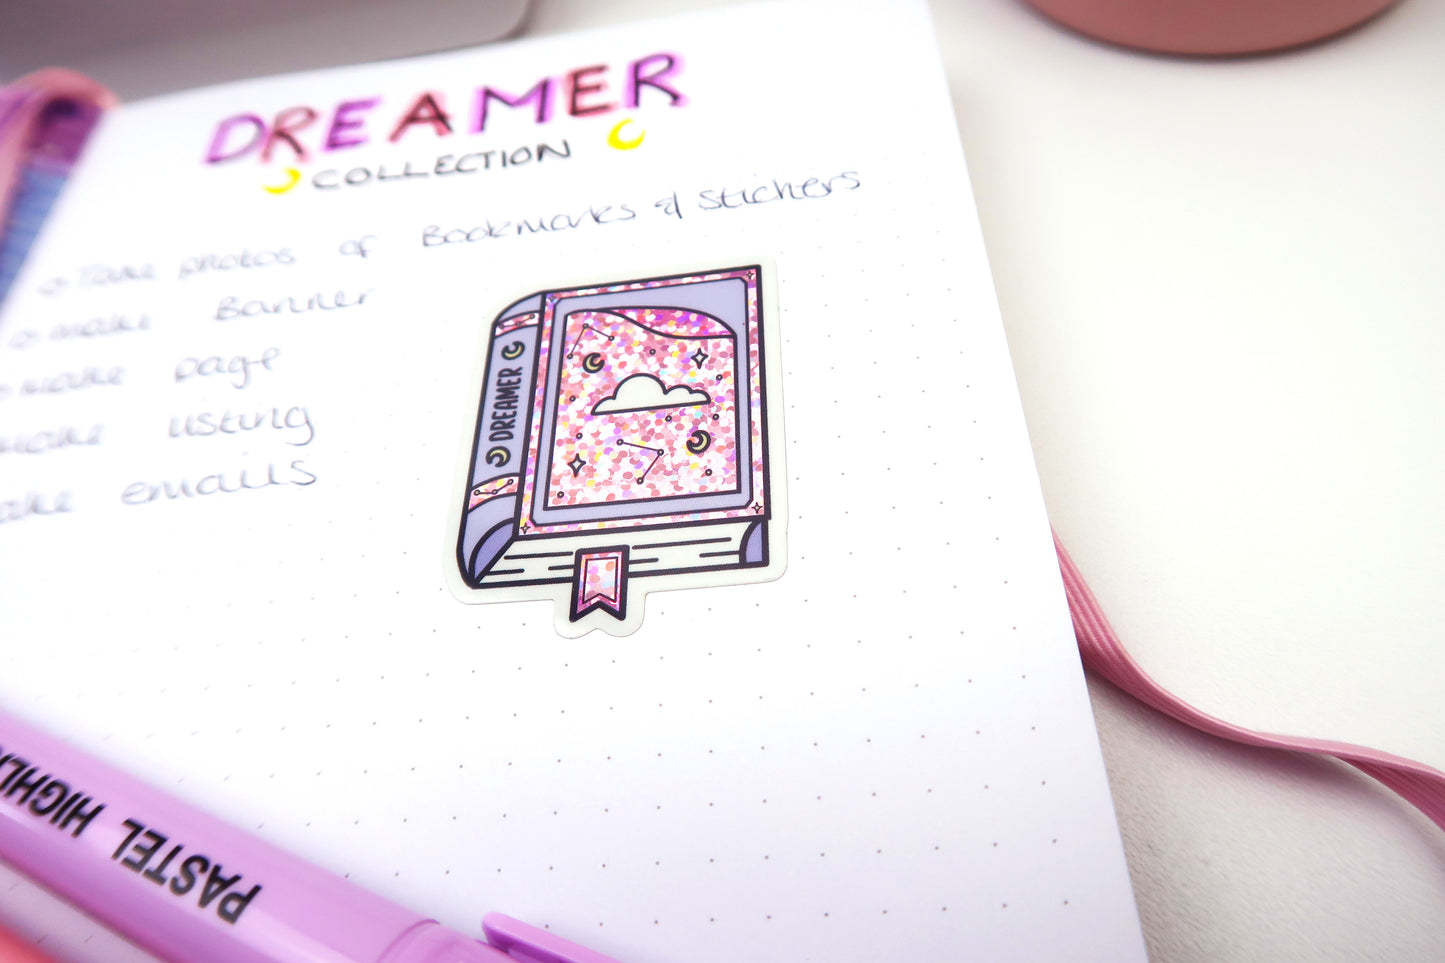 DREAMER
COLLECTION
Take photos of Bookmarks & Stickers
make Banner
make page
make listing
make emails
DREAMER
PASTEL